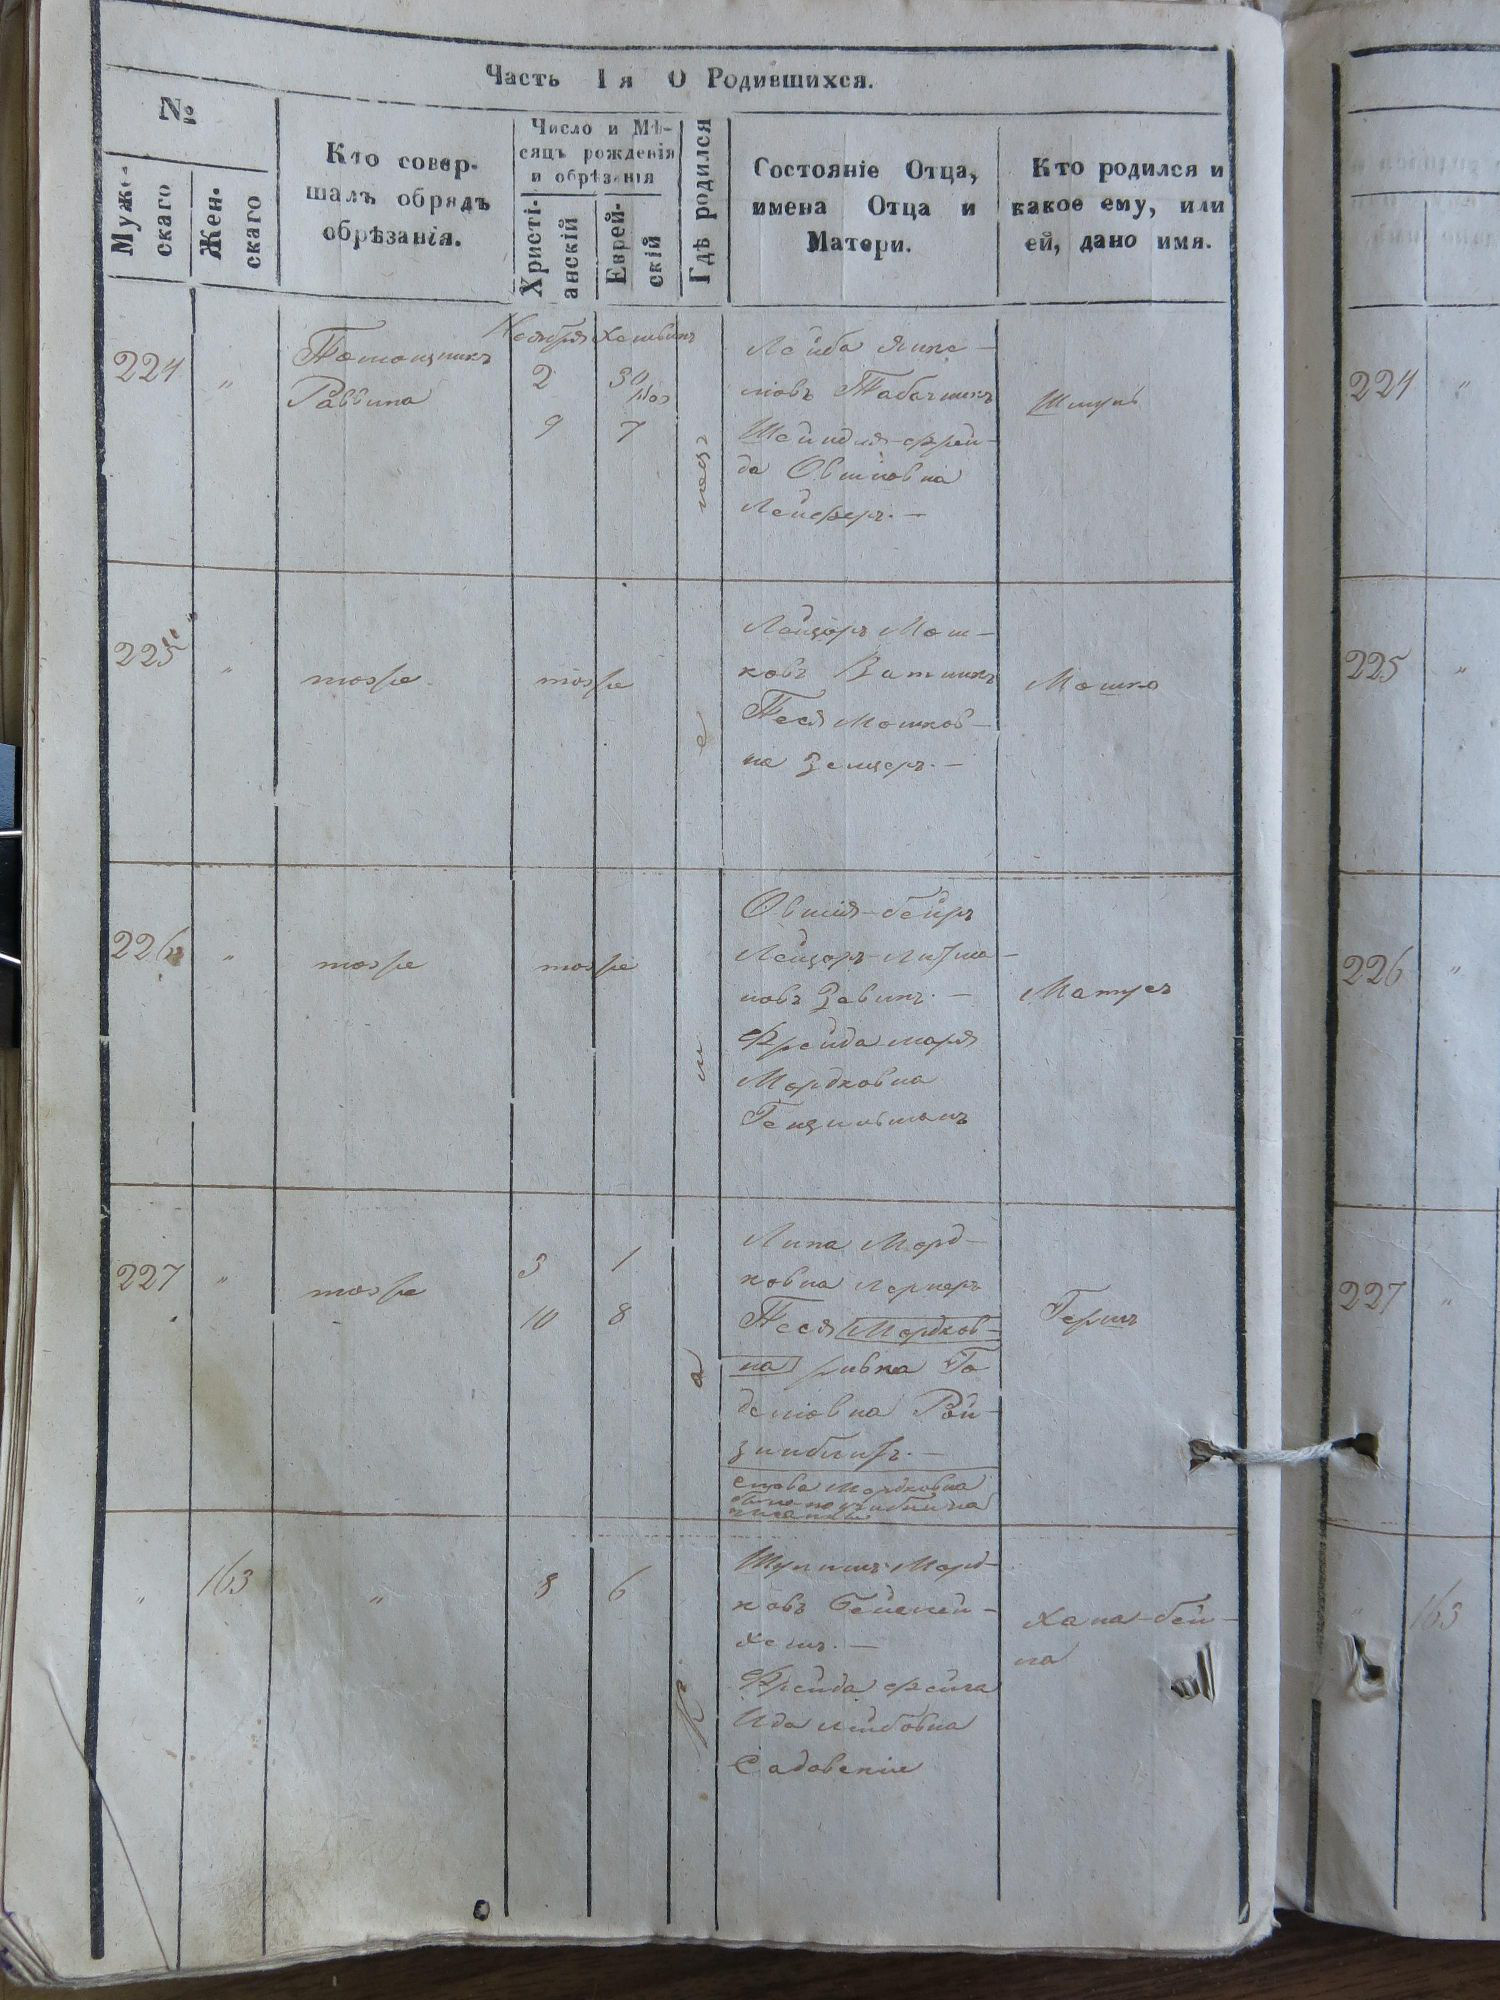 Часть 1я О Родившихся.
№
Мужескаго
Женскаго
Кто совер-
шалъ обрядъ
обрѣзанія.
Число и Мѣ-
сяцъ рожденія
и обрѣзанія
Христі-
анскій
Еврей-
скій
Гдѣ родился
Состояніе Отца,
имена Отца и
Матери.
Кто родился и
какое ему, или
ей, дано имя.
224 "
Помощникъ
Раввина
Ноября
2
9
Хешвинъ
30
7
Лейба Янке-
левъ Табачникъ
Шейндля-Фрей-
да Овшіовна
Лейферъ. –
Шмуль
225 "
тоже
тоже
Лейзоръ Мош-
ковъ Ватникъ
Песя Мошков-
на Зельцеръ. –
Мошко
226 "
тоже
тоже
Овшія-бейръ
Лейзоръ-Литма-
новъ –
Фрейда Маря
Мордковна
Матусъ
227 "
тоже
3 1
10 8
Липа Морд-
ковна Лернеръ
Песя Мордков-
на ривка Го
делювна Рой-
зинблитъ. –
слова Мордковна
Гершъ
" 163
"
3 6
Морд-
ковъ
хесъ. –
Фрейда фейга
Ида Лейбовна
Хана-бей-
ла
224 "
225 "
226 "
227 "
" 163